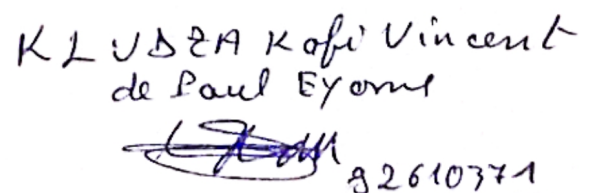 KLUDZA Kofi Vincent
de Paul EYOME
92610371